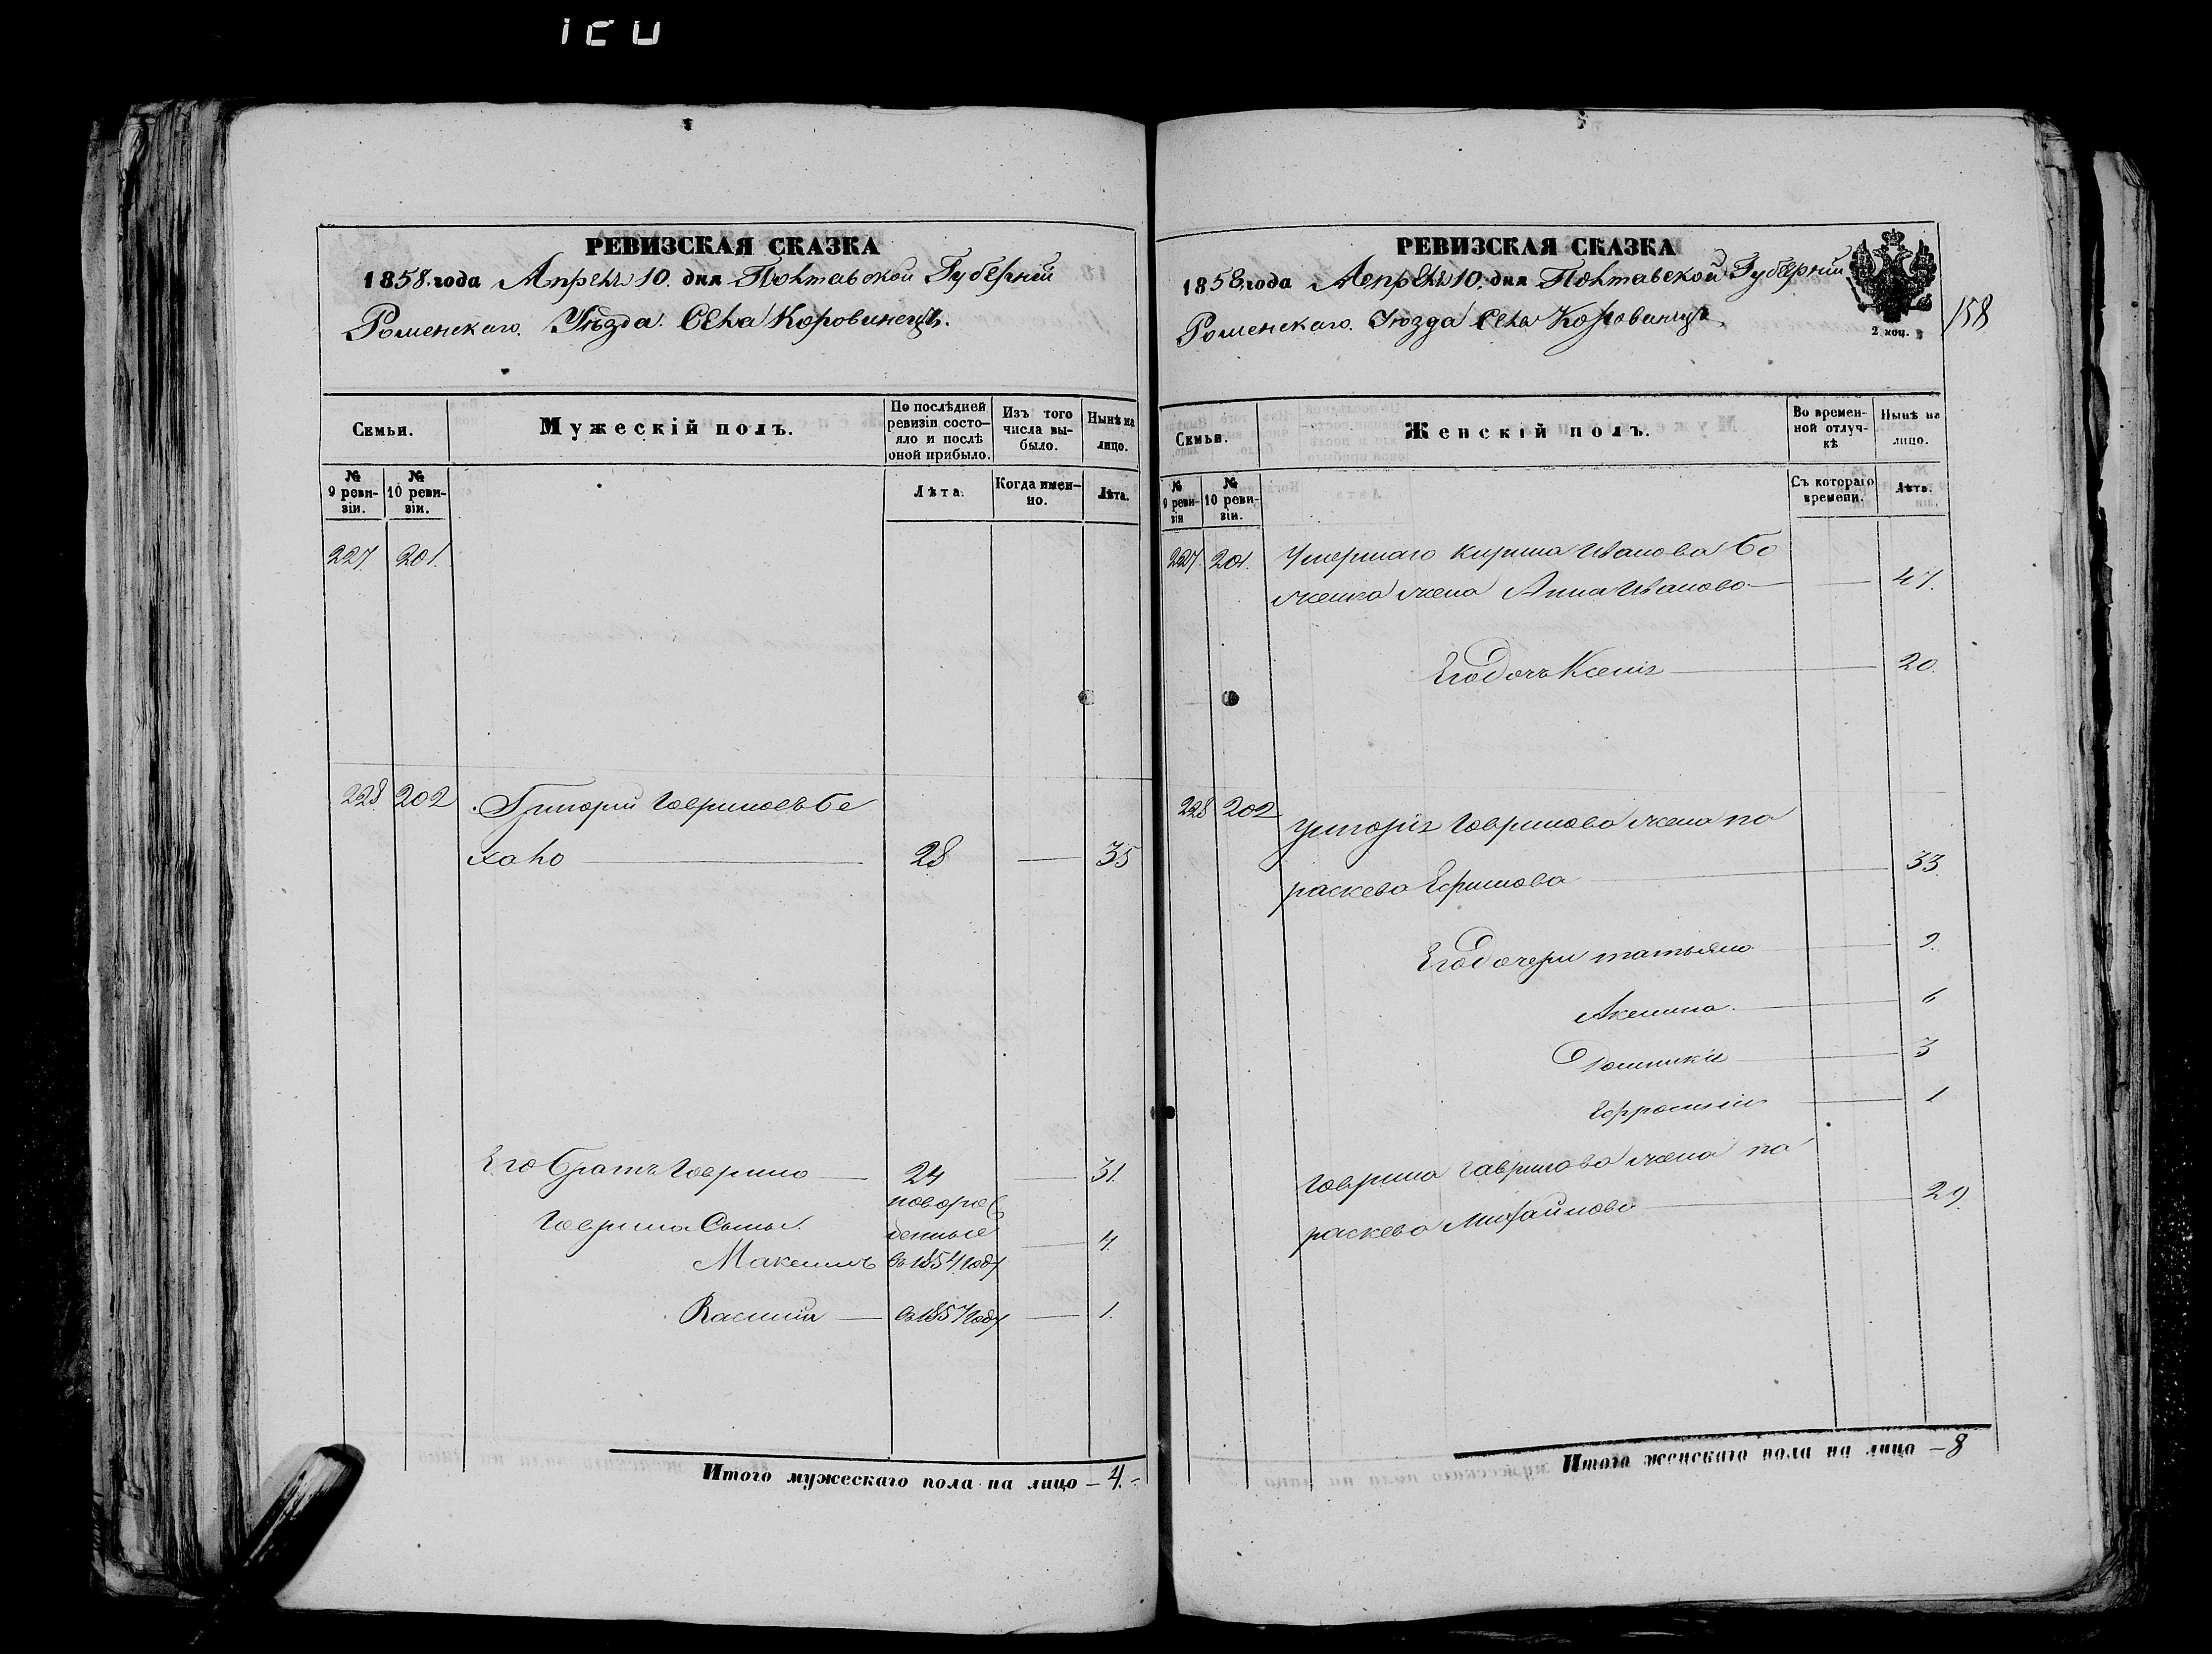 РЕВИЗСКАЯ СКАЗКА
1858. года Апреля 10. дня Полтавской Губерніи
Роменскаго. Уѣзда. Села Коровинецъ.
Семьи.
Мужескій полъ.
По послѣдней ревизіи состояло и послѣ оной прибыло.
Изъ того числа выбыло.
Нынѣ на лицо.
№ 9 ревизіи.
№ 10 ревизіи.
Лѣта.
Когда именно.
Лѣта.
227. 201.
228 202 Григорій Гавриловъ Бе
хало 28 35
Его братъ Гаврило 24 31.
новорож
Гаврила Сыны. денные
Максимъ въ 1854 году 4.
Василій въ 1857 году 1.
Итого мужескаго пола на лицо – 4. –
РЕВИЗСКАЯ СКАЗКА
1858 года Апреля 10. дня Полтавской Губерніи
Роменскаго. Уѣзда Села Коровинецъ
2 коп.
158
Семьи.
Женскій полъ.
Во временной отлучкѣ
Нынѣ на лицо.
№ 9 ревизіи
№ 10 ревизіи.
Съ котораго времени.
Лѣта.
227. 201. Умершаго Ивановa
жена Анна Иванова 47.
Его дочь Ксенія 20.
228 202 Григорія Гаврилова жена Па
раскева Ефимова 33.
Его дочери Татьяна 9.
Акелина 6
Домникія 3
Ефросинія 1
Гаврила Гаврилова жена Па
раскева Михайлова 29.
Итого женскаго пола на лицо – 8